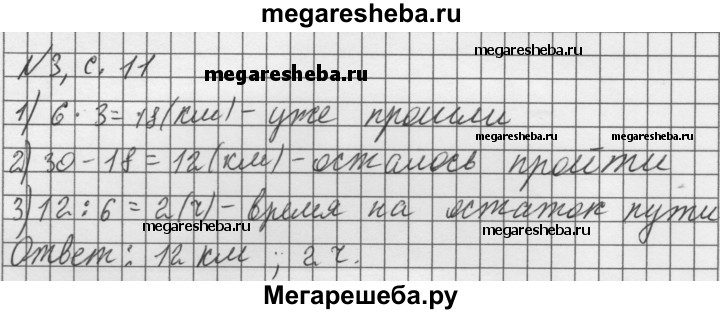 megaresheba.ru
N3, с. 11
megaresheba.ru
megaresheba.ru
1) 6 · 3 = 18 (км) - уже прошли
megaresheba.ru
megaresheba.ru
2) 30 - 18 = 12 (км) - осталось пройти
3) 12 : 6 = 2 (ч) - время на остаток пути
megaresheba.ru
megaresheba.ru
Ответ: 12 км ; 2 ч.
Мегарешеба.ру